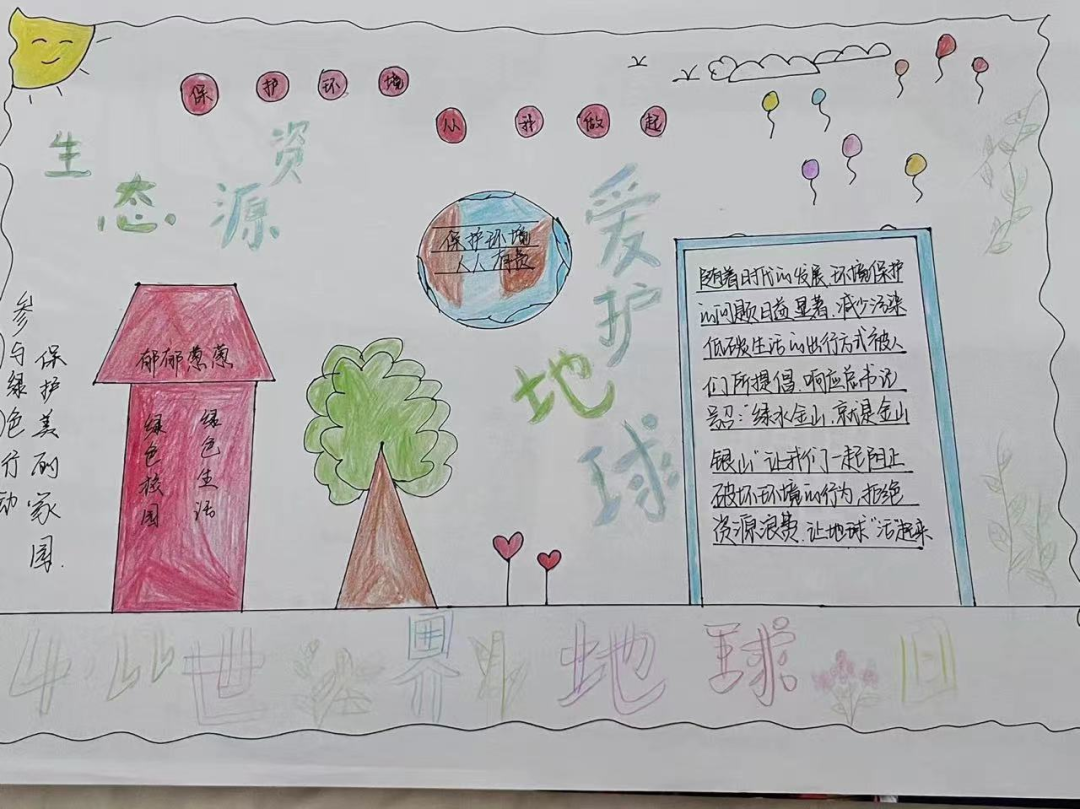 保护环境
从我做起
生态资源
爱护地球
保护环境
人人有责
参与绿色行动
保护美丽家园.
郁郁葱葱
绿色校园
绿色生活
随着时代的发展,环境保护
的问题日益显著,减少污染
低碳生活的出行方式被人
们所提倡.响应总书记
号召:"绿水金山,就是金山
银山"让我们一起阻止
破坏环境的行为,拒绝
资源浪费.让地球"活起来
世界地球日